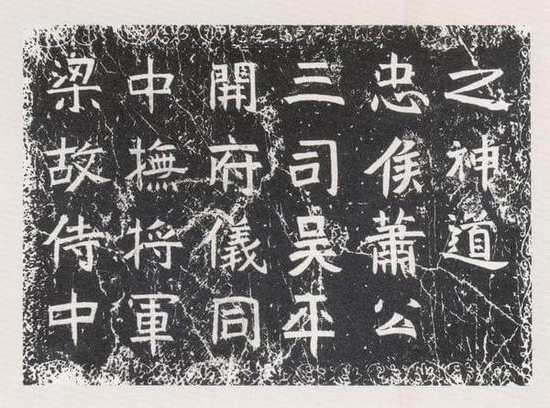 梁故侍中
中撫将軍
開府儀同
三司吳平
忠侯蕭公
之神道